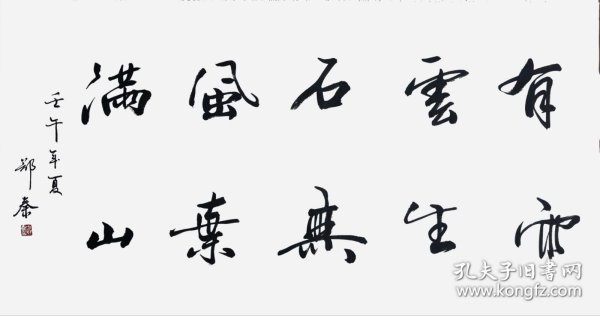 有雨
雲生
石無
風葉
滿山
壬午年夏
鄭
孔夫子旧书网
www.kongfz.com